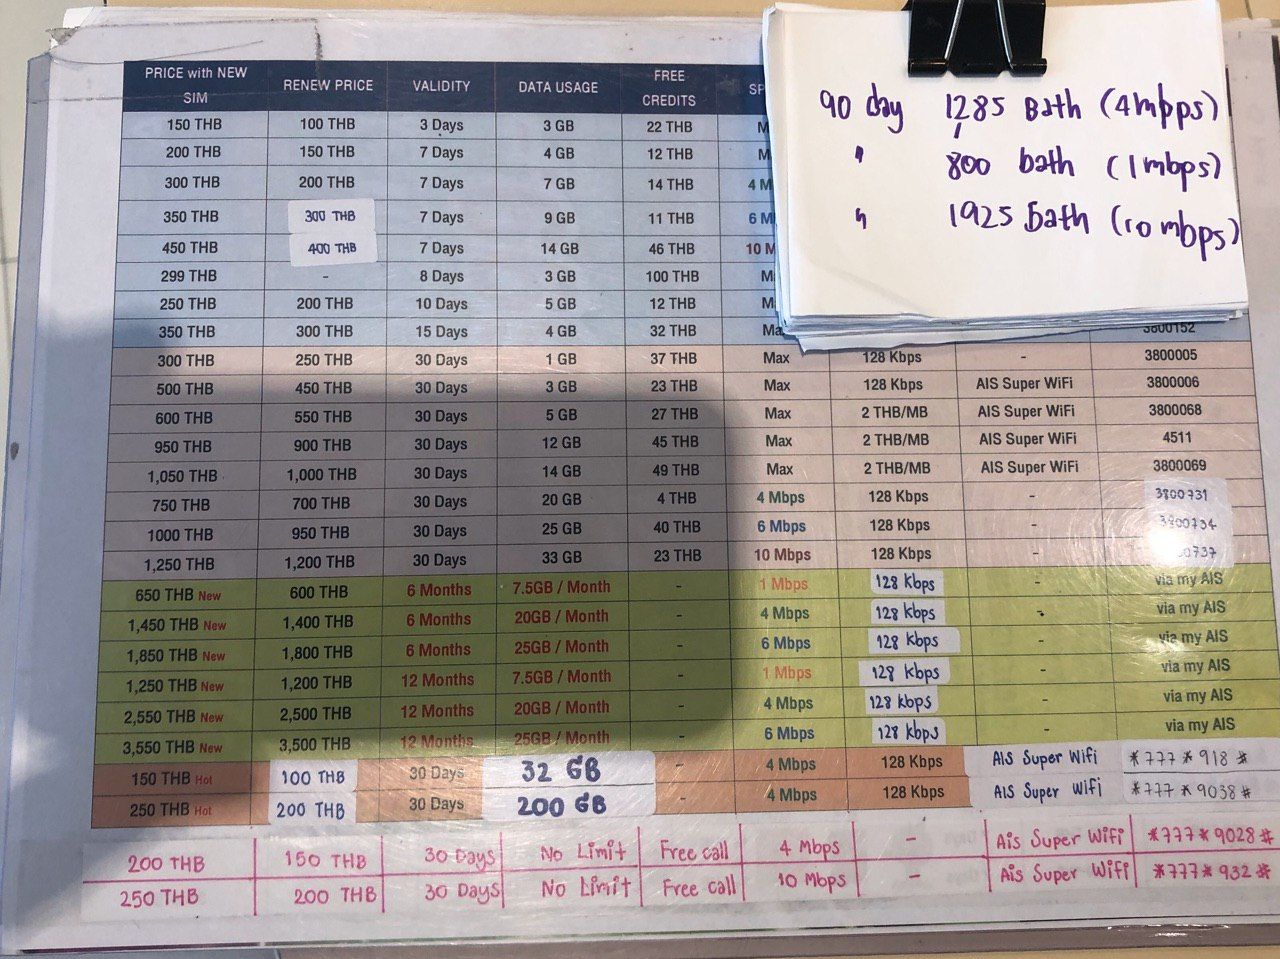 90 day 1285 Bath (4mpps)
" 800 bath (1mbps)
" 1925 bath (10 mbps)
PRICE with NEW SIM RENEW PRICE VALIDITY DATA USAGE FREE CREDITS SP
150 THB 100 THB 3 Days 3 GB 22 THB M
200 THB 150 THB 7 Days 4 GB 12 THB M
300 THB 200 THB 7 Days 7 GB 14 THB 4 M
350 THB 300 THB 7 Days 9 GB 11 THB 6 M
450 THB 400 THB 7 Days 14 GB 46 THB 10 M
299 THB - 8 Days 3 GB 100 THB M
250 THB 200 THB 10 Days 5 GB 12 THB M
350 THB 300 THB 15 Days 4 GB 32 THB Ma 3800152
300 THB 250 THB 30 Days 1 GB 37 THB Max 128 Kbps - 3800005
500 THB 450 THB 30 Days 3 GB 23 THB Max 128 Kbps AIS Super WiFi 3800006
600 THB 550 THB 30 Days 5 GB 27 THB Max 2 THB/MB AIS Super WiFi 3800068
950 THB 900 THB 30 Days 12 GB 45 THB Max 2 THB/MB AIS Super WiFi 4511
1,050 THB 1,000 THB 30 Days 14 GB 49 THB Max 2 THB/MB AIS Super WiFi 3800069
750 THB 700 THB 30 Days 20 GB 4 THB 4 Mbps 128 Kbps - 3800731
1000 THB 950 THB 30 Days 25 GB 40 THB 6 Mbps 128 Kbps - 3800734
1,250 THB 1,200 THB 30 Days 33 GB 23 THB 10 Mbps 128 Kbps - 00737
650 THB New 600 THB 6 Months 7.5GB / Month - 1 Mbps 128 Kbps - via my AIS
1,450 THB New 1,400 THB 6 Months 20GB / Month - 4 Mbps 128 Kbps - via my AIS
1,850 THB New 1,800 THB 6 Months 25GB / Month - 6 Mbps 128 Kbps - via my AIS
1,250 THB New 1,200 THB 12 Months 7.5GB / Month - 1 Mbps 128 Kbps - via my AIS
2,550 THB New 2,500 THB 12 Months 20GB / Month - 4 Mbps 128 Kbps - via my AIS
3,550 THB New 3,500 THB 12 Months 25GB / Month - 6 Mbps 128 Kbps - via my AIS
150 THB Hot 100 THB 30 Days 32 GB - 4 Mbps 128 Kbps AIS Super Wifi *777*918#
250 THB Hot 200 THB 30 Days 200 GB - 4 Mbps 128 Kbps AIS Super Wifi *777*9038#
200 THB 150 THB 30 Days No Limit Free call 4 Mbps - Ais Super Wifi *777*9028#
250 THB 200 THB 30 Days No Limit Free call 10 Mbps - Ais Super Wifi *777*932#